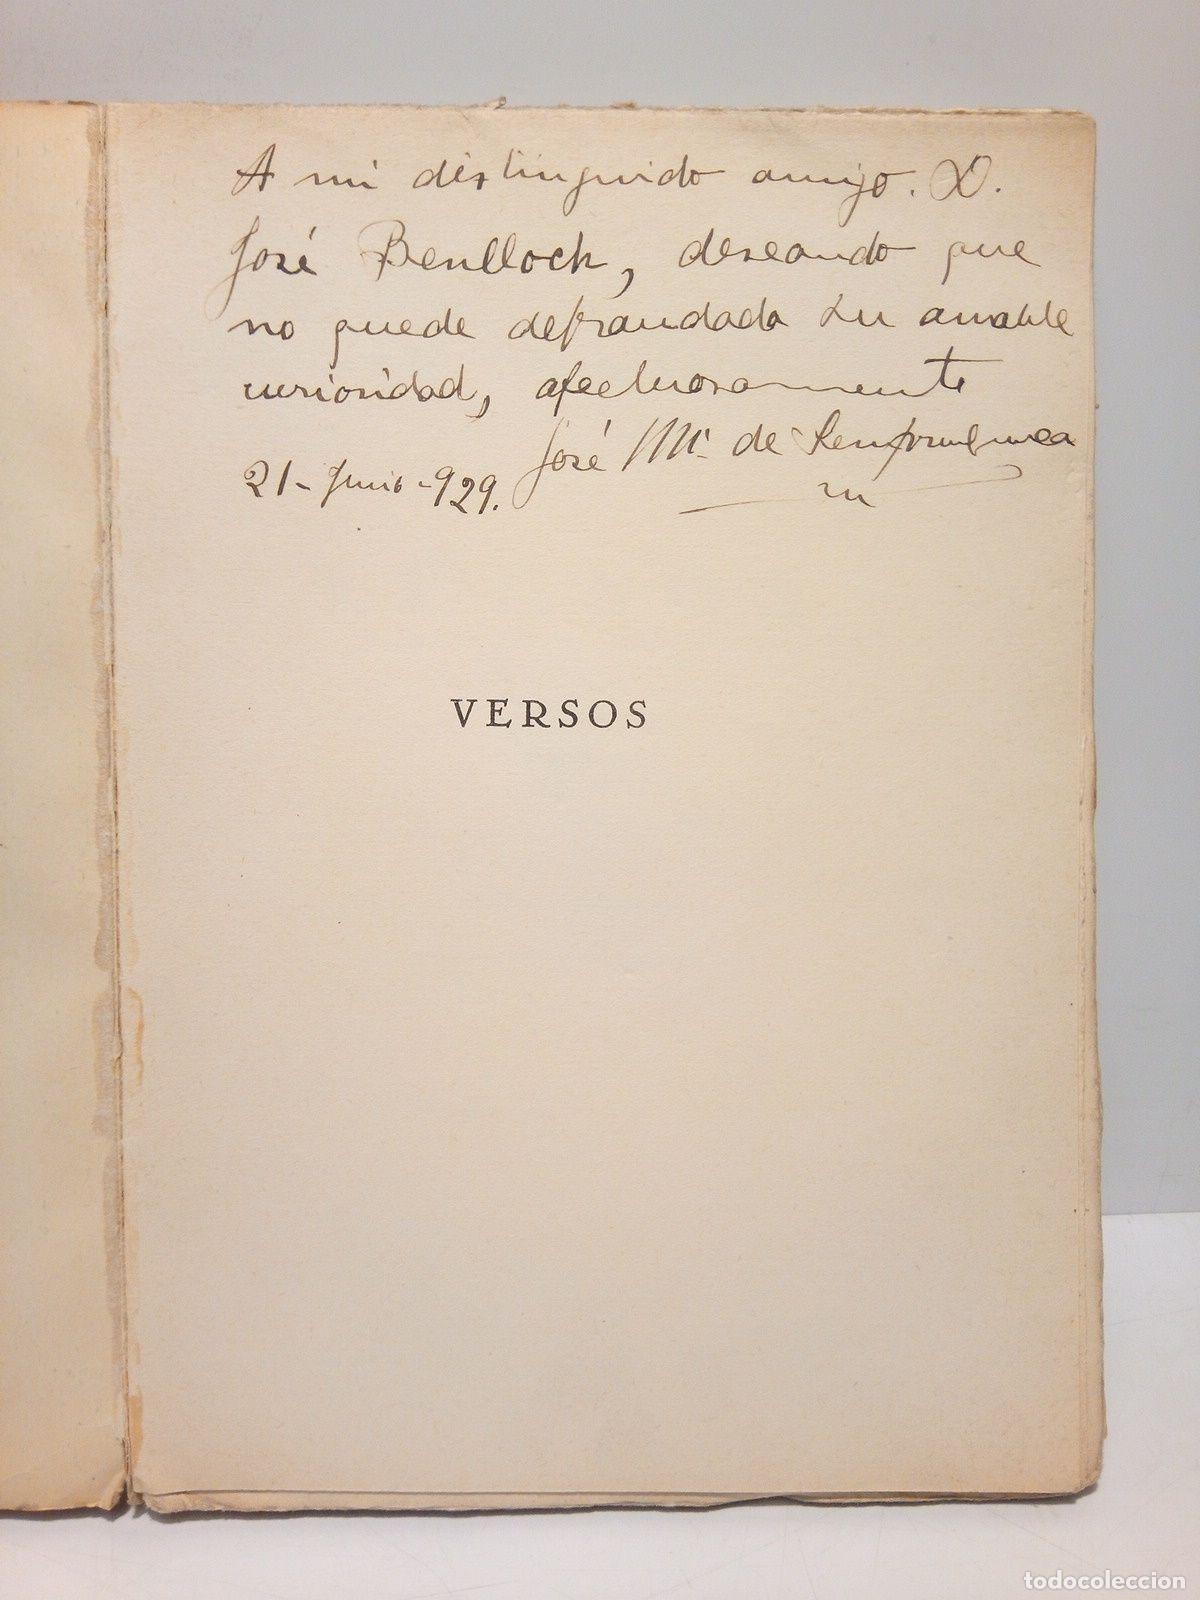 A mi distinguido amigo. D.
José Benlloch, deseando que
no quede defraudada su amable
curiosidad, afectuosamente
José Mª de
21-Junio-929.
VERSOS
todocoleccion